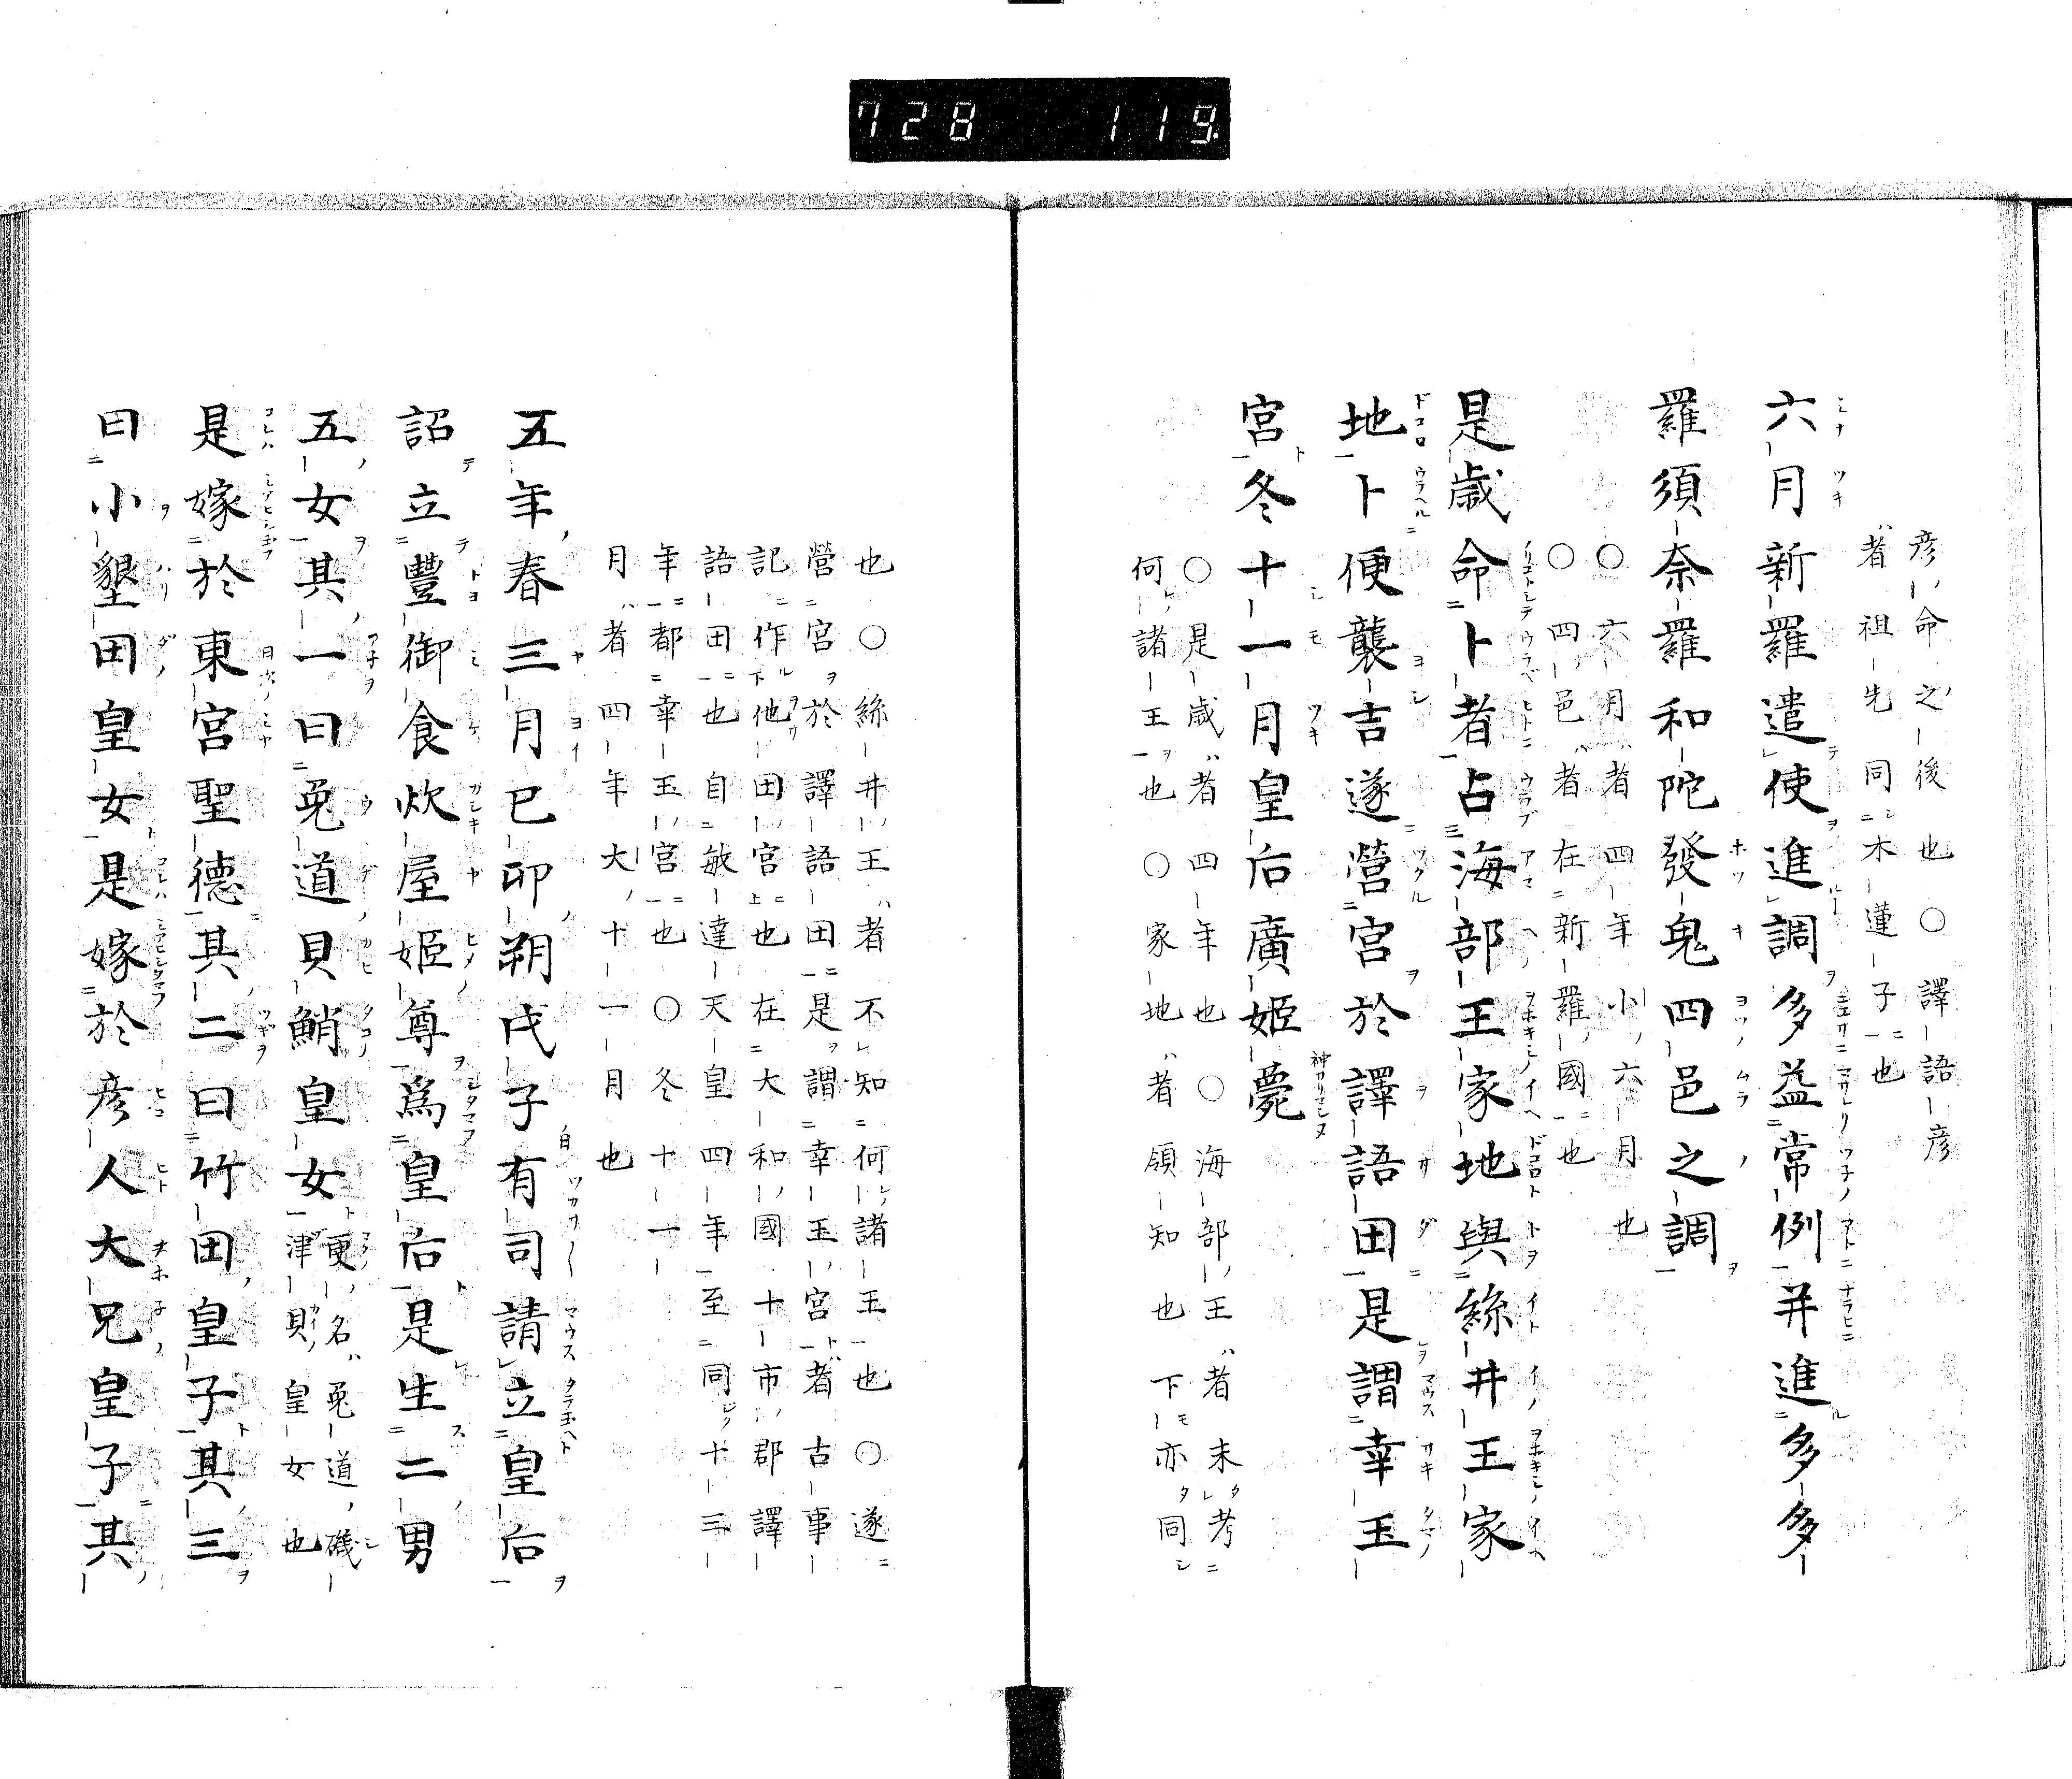 728 119
彦命之後也○譯語彦
者祖先同木蓮子也
六月新羅遣使進調多益常例并進多多
羅須奈羅和陀發鬼四邑之調
○六月者四年小六月也
○四邑者在新羅國也
是歳命卜者占海部王家地與絲井王家
地卜便襲吉遂營宮於譯語田是謂幸玉
宮冬十一月皇后廣姫薨
○是歳者四年也○海部王者未考
何諸王也○家地者領知也下亦同
也○絲井王者不知何諸王也○遂
營宮於譯語田是謂幸玉宮者古事
記作他田宮也在大和國十市郡譯
語田也自敏達天皇四年至同十三
年都幸玉宮也○冬十一
月者四年大十一月也
五年春三月已卯朔戊子有司請立皇后
詔立豐御食炊屋姫尊爲皇后是生二男
五女其一曰菟道貝鮹皇女更名菟道磯
津貝皇女也
是嫁於東宮聖德其二曰竹田皇子其三
曰小墾田皇女是嫁於彦人大兄皇子其